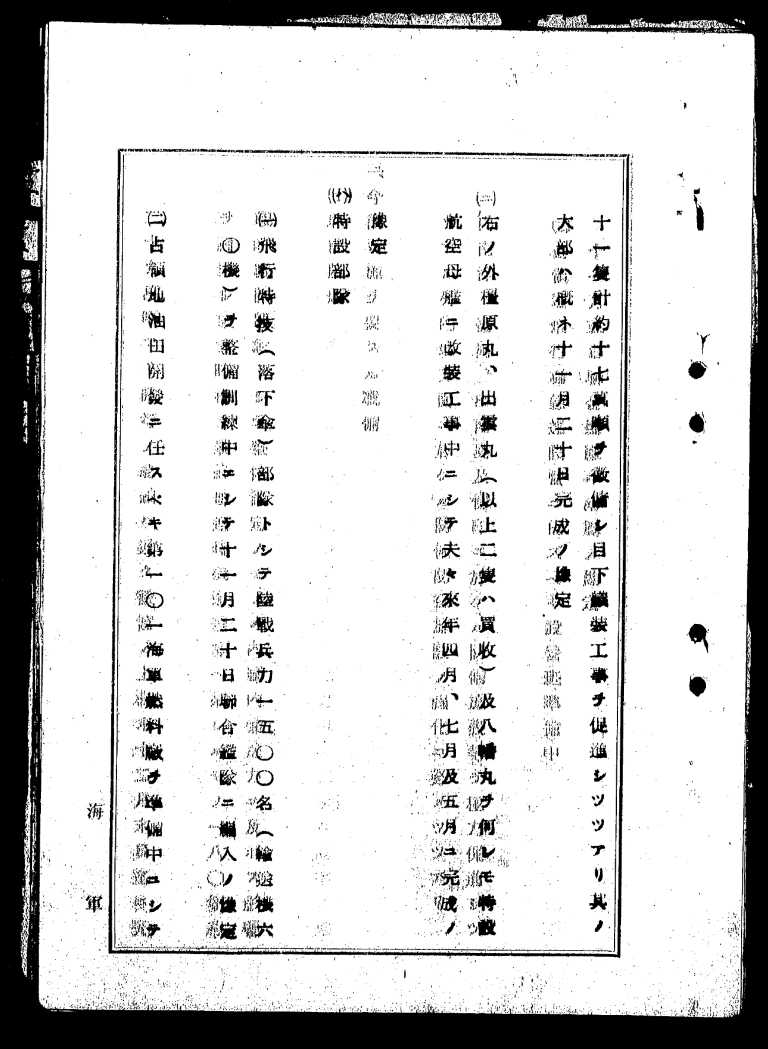 十一隻計約十七萬噸ヲ徴傭シ目下艤装工事ヲ促進シツツアリ其ノ
大部ハ概ネ十一月二十日完成ノ豫定
㈢右ノ外橿原丸、出雲丸(以上二隻ハ買收)及八幡丸ヲ何レモ特設
航空母艦ニ改裝工事中ニシテ夫々來年四月、七月及五月ニ完成ノ
豫定
㈥特設部隊
㈠飛行特技(落下傘)部隊トシテ陸戰兵力一五〇〇名(輸送機六
〇機)ヲ整備訓練中ニシテ十一月二十日聯合艦隊ニ編入ノ豫定
㈡占領地油田開發ニ任スヘキ第一〇一海軍燃料廠ヲ準備中ニシテ
海軍